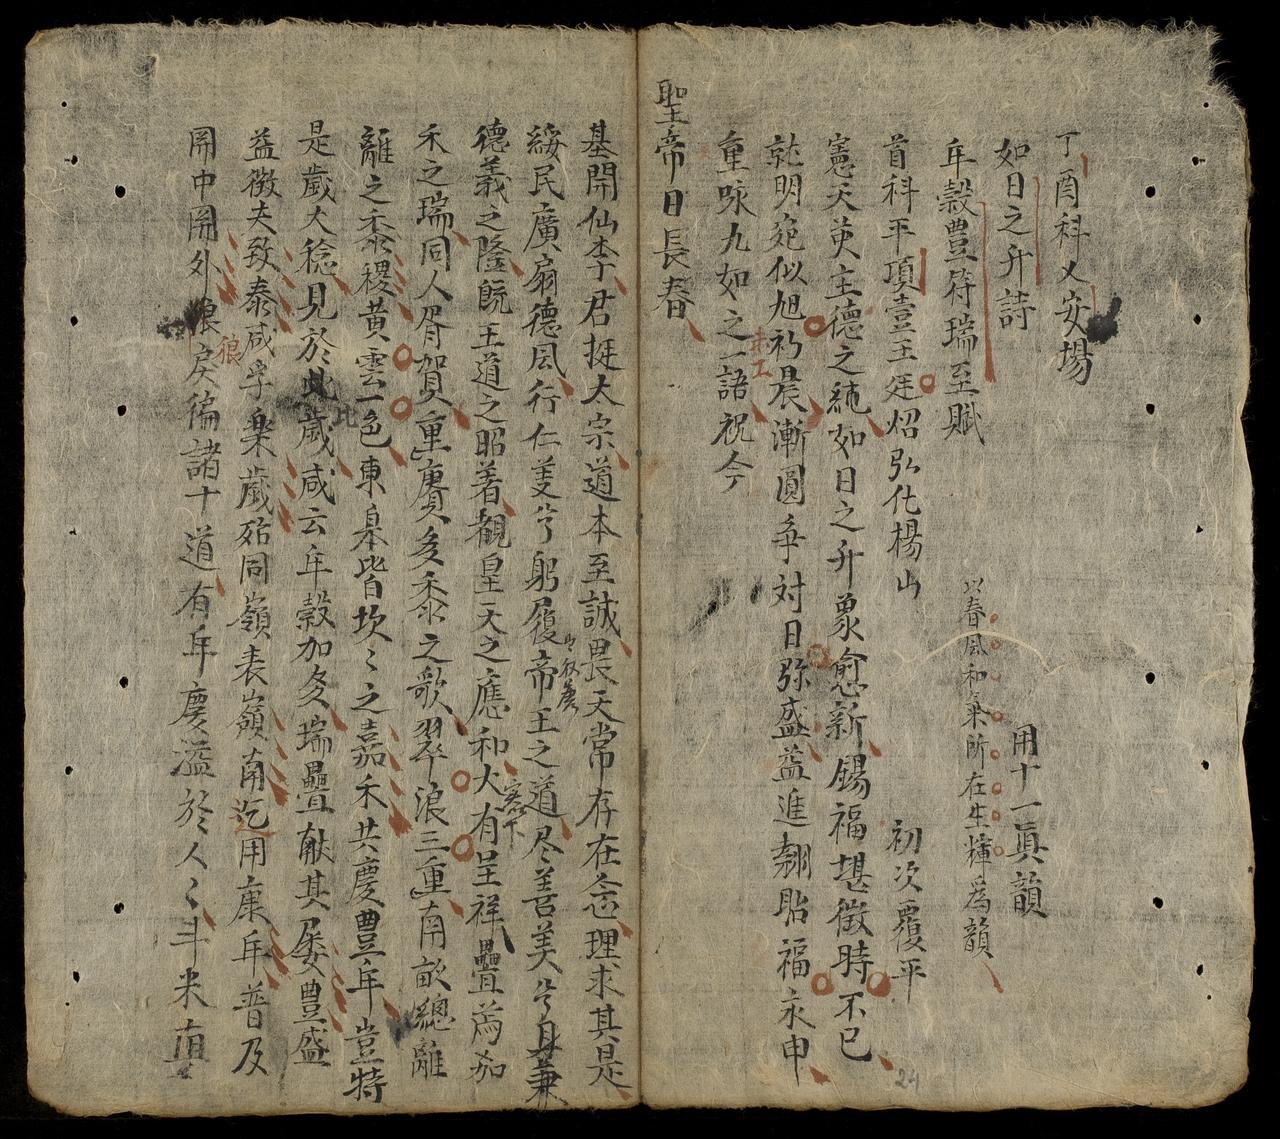 丁酉科乂安場
如日之升詩
用十一眞韻
年穀豊符瑞至賦
以春風和氣所在生輝為韻
首科平項壹王廷炤弘化楊山
初次覆平
憲天英主德之純如日之升象愈新錫福堪徵時不已
就明宛似旭初晨漸圓争対日弥盛益進翹貽福永申
重咏九如之一語祝今
聖帝日長春
基開仙李君挺太宗道本至誠畏天常存在念理求其是
綏民廣扇德風行仁美兮躬履帝王之道尽善美兮身兼
德義之隆既王道之昭著覩皇天之應和大有呈祥疊為加
禾之瑞同人胥賀重賡多黍之歌翠浪三重南畝總離
離之黍稷黄雲一色東皋皆坎〻之嘉禾共慶豊年豈特
是歲大稔見於此歲咸云年穀加多瑞疊献其屡豊盛
此
益徵夫致泰咸孚樂歲殆同嶺表嶺南迄用康年普及
関中関外浪戻徧諸十道有年慶溢於人〻斗米直
狼
24